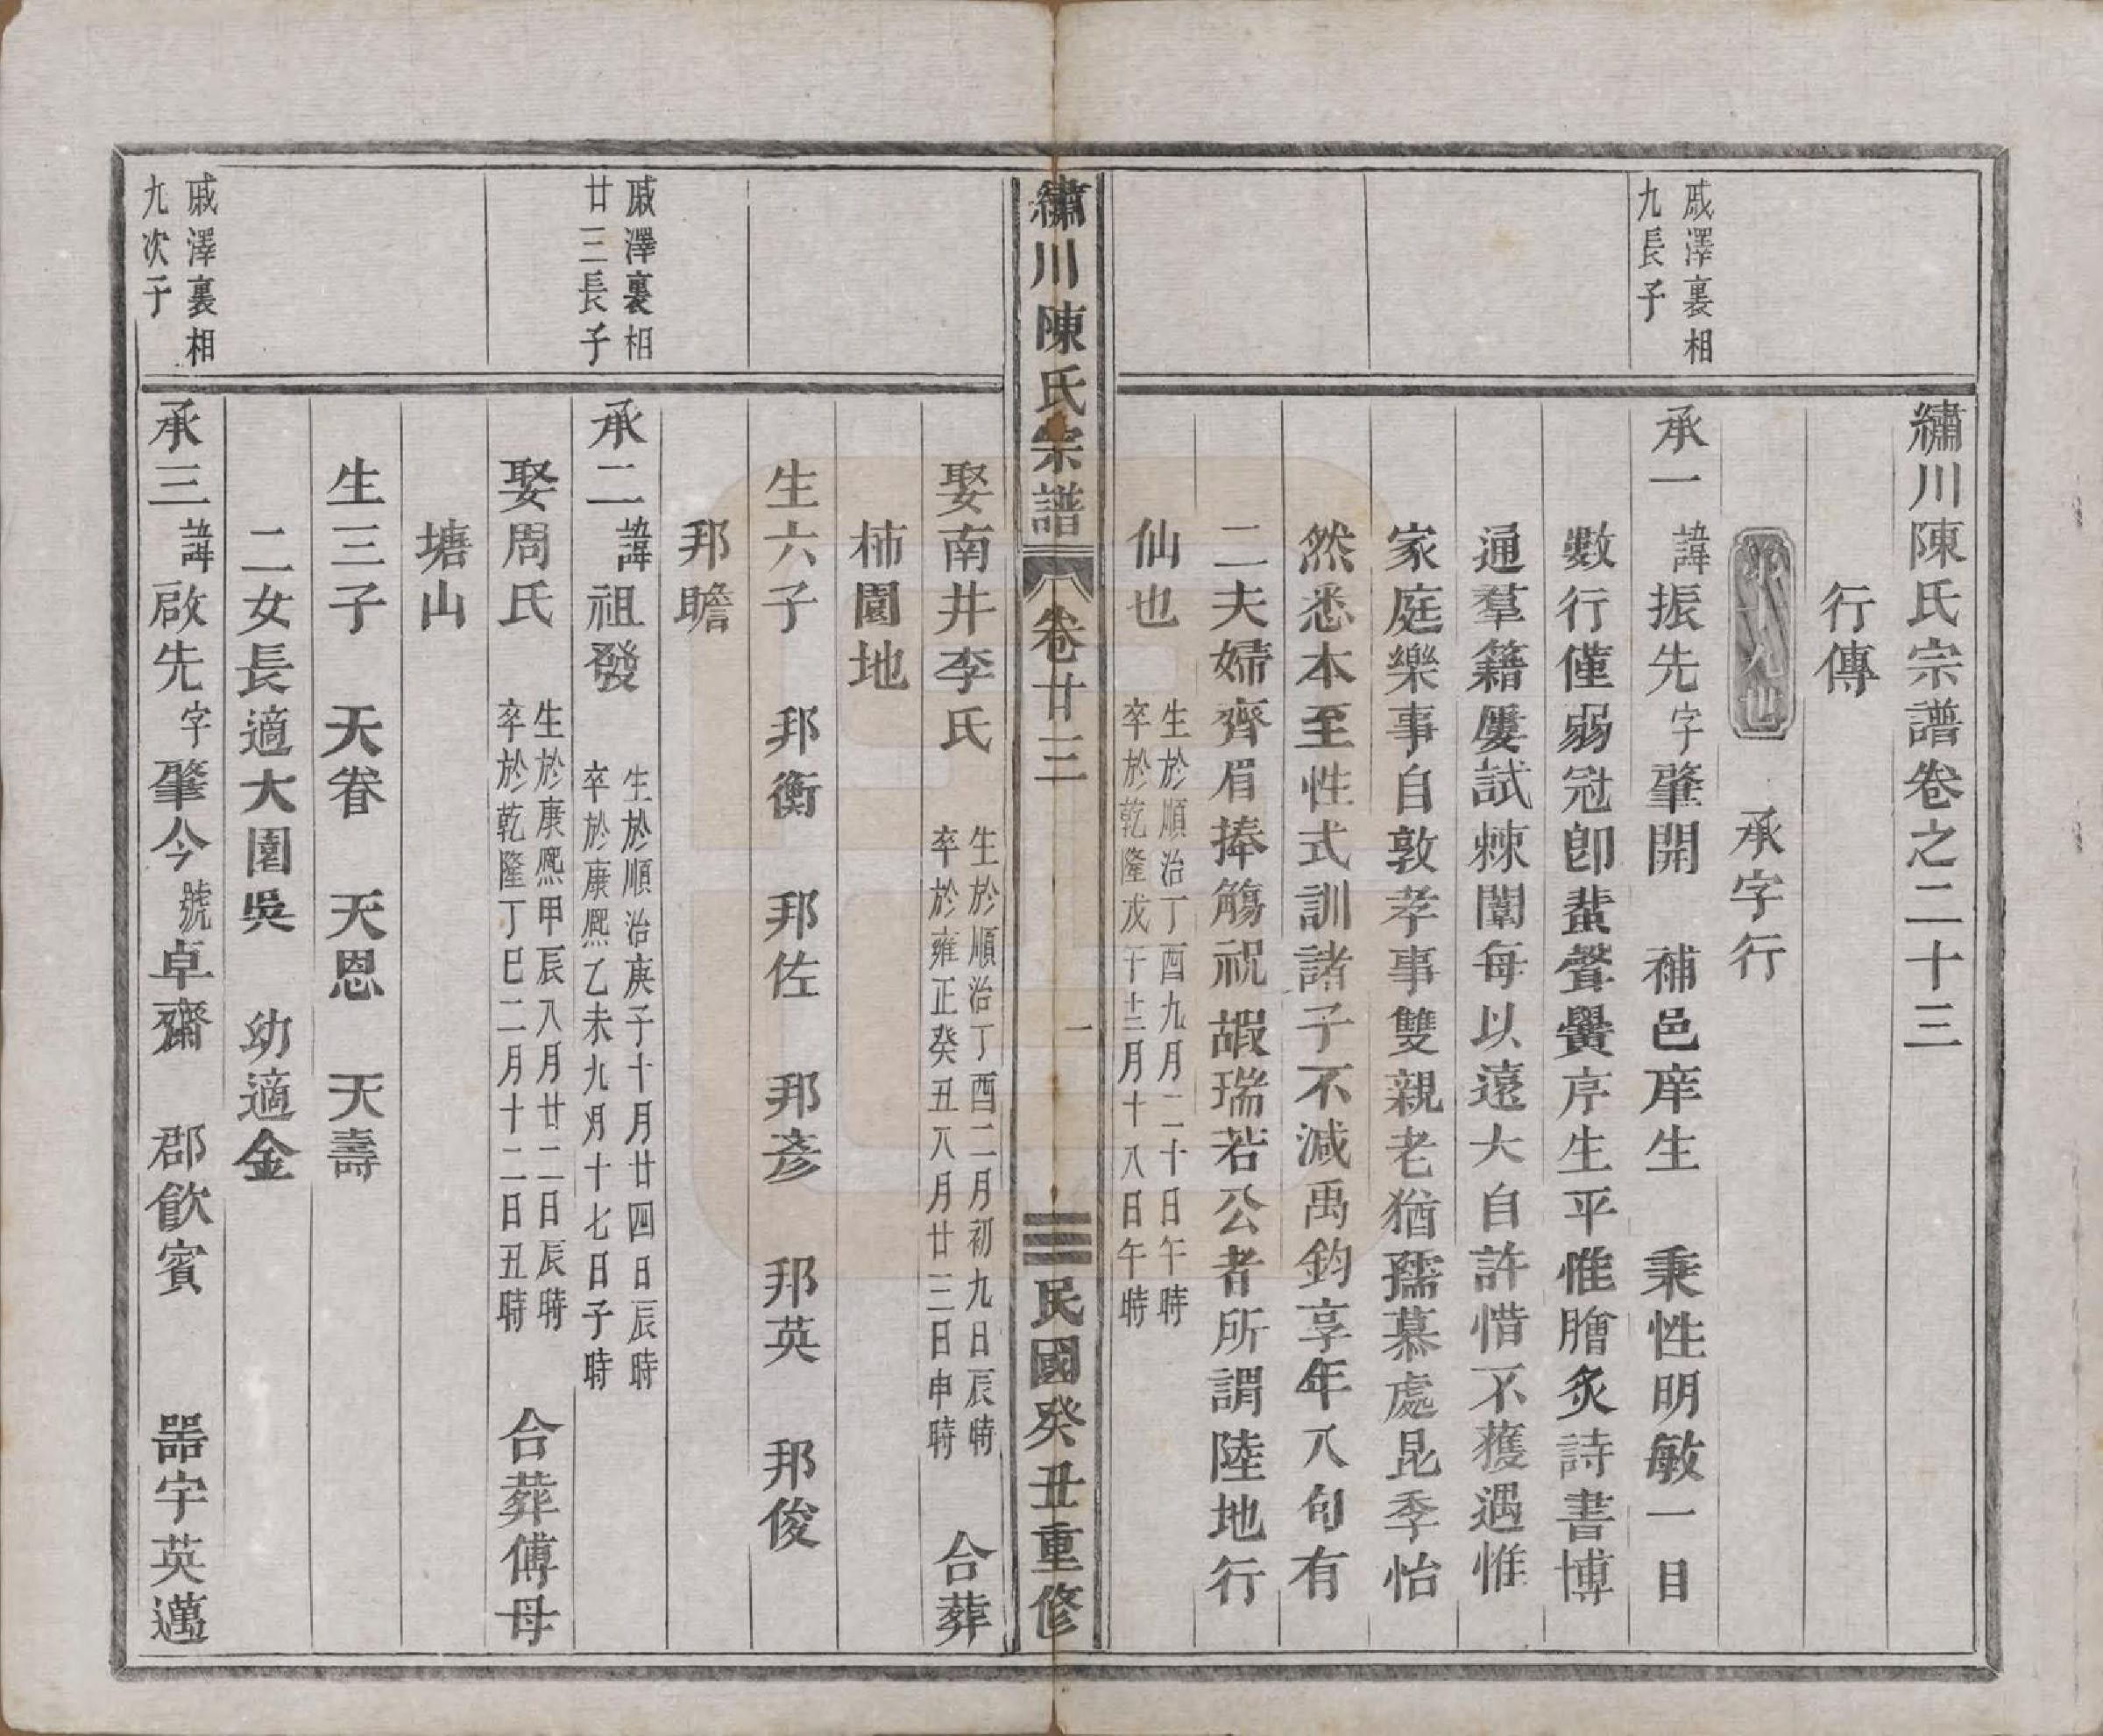 繡川陳氏宗譜卷之二十三
行傳
第十九世　承字行
戚澤裏相
九長子
承一諱振先字肇開　補邑庠生　秉性明敏一目
數行僅弱冠卽蜚聲黌序生平惟膾炙詩書博
通羣籍屢試棘闈每以遠大自許惜不獲遇惟
家庭樂事自敦孝事雙親老猶孺慕處昆季怡
然悉本至性式訓諸子不減禹鈞享年八旬有
二夫婦齊眉捧觴祝嘏瑞若公者所謂陸地行
仙也
生於順治丁酉九月二十日午時
卒於乾隆戊午十二月十八日午時
繡川陳氏宗譜　卷廿三　一　民國癸丑重修
娶南井李氏
生於順治丁酉二月初九日辰時
卒於雍正癸丑八月廿三日申時
合葬
柿園地
生六子　邦衡　邦佐　邦彥　邦英　邦俊
邦瞻
戚澤裏相
廿三長子
承二諱祖發
生於順治庚子十月廿四日辰時
卒於康熙乙未九月十七日子時
娶周氏
生於康熙甲辰八月廿二日辰時
卒於乾隆丁巳二月十二日丑時
合葬傅母
塘山
生三子　天眷　天恩　天壽
二女長適大園吳　幼適金
戚澤裏相
九次子
承三諱啟先字肇今號卓齋　郡飲賓　器宇英邁